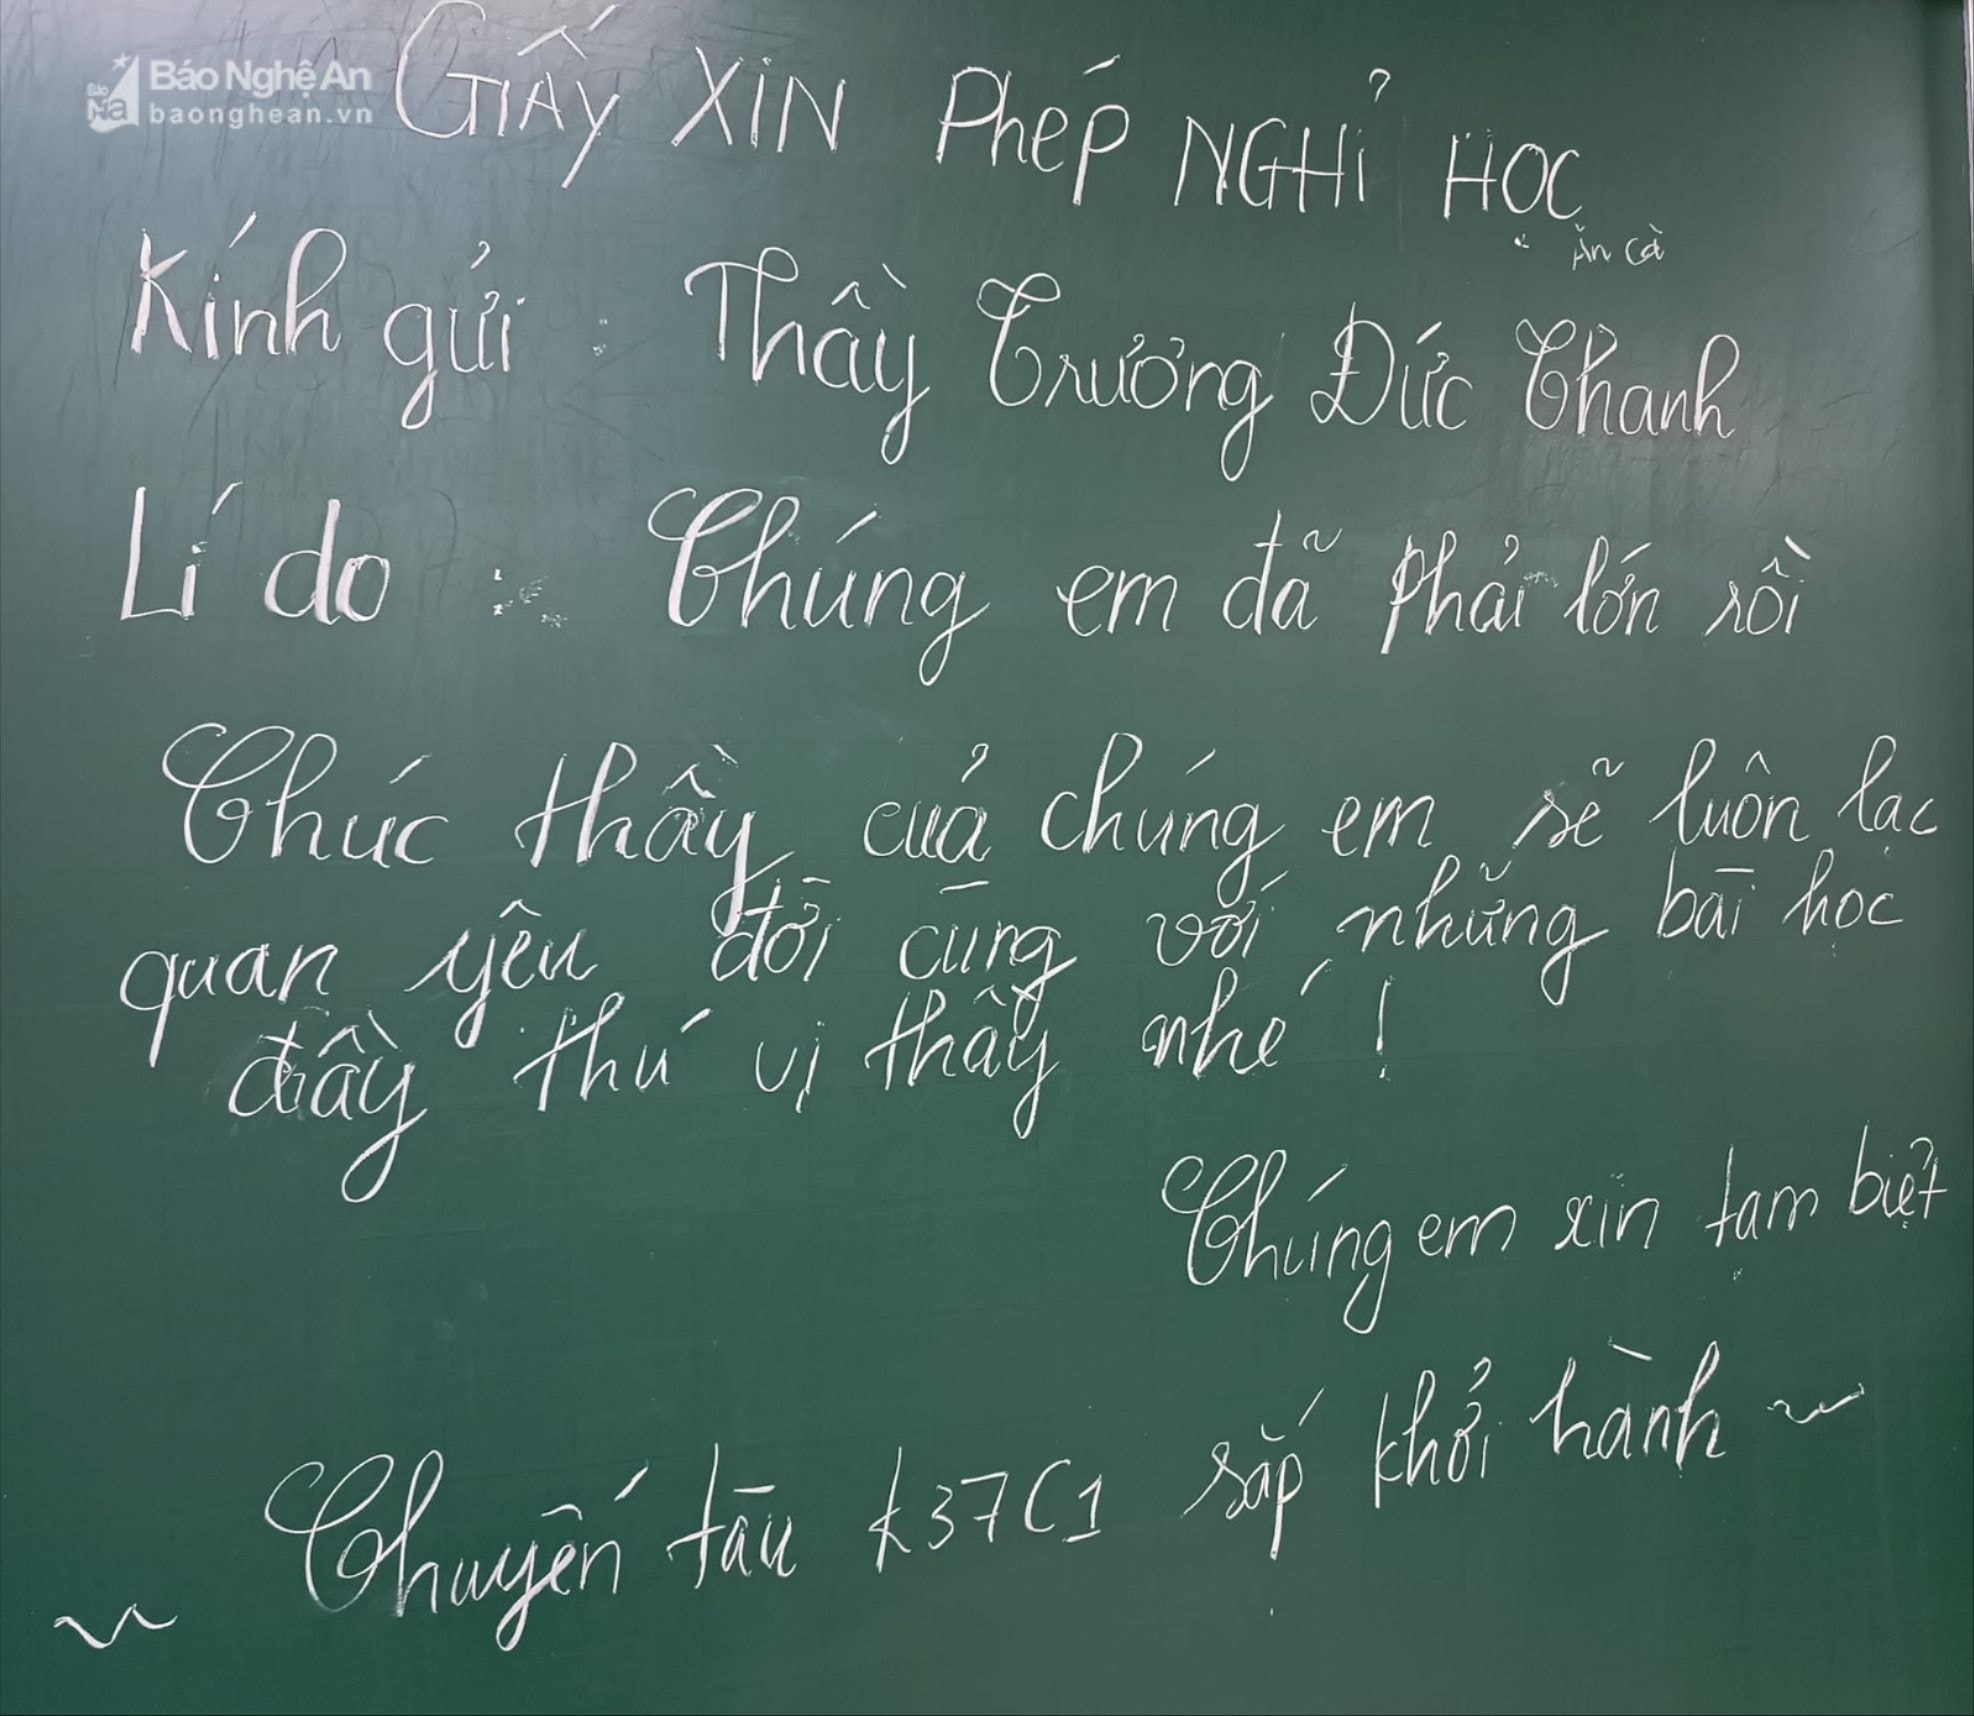 Báo Nghệ An
baonghean.vn
GIẤY XIN PhéP NGHỈ HỌC
Ăn cà
Kính gửi : Thầy Trương Đức Thanh
Lí do : Chúng em đã phải lớn rồi
Chúc thầy của chúng em sẽ luôn lạc
quan yêu đời cùng với những bài học
đầy thú vị thầy nhé !
Chúng em xin tạm biệt
~ Chuyến tàu K37C1 sắp khởi hành ~